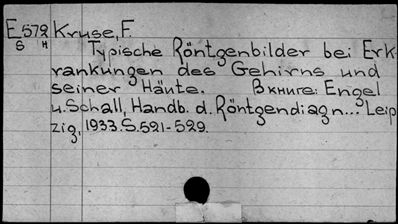 E572 Kruse, F.
S H Typische Röntgenbilder bei Erk-
rankungen des Gehirns und
seiner Häute. В книге: Engel
u. Schall, Handb. d. Röntgendiagn... Leip
zig, 1933. S. 521-529.